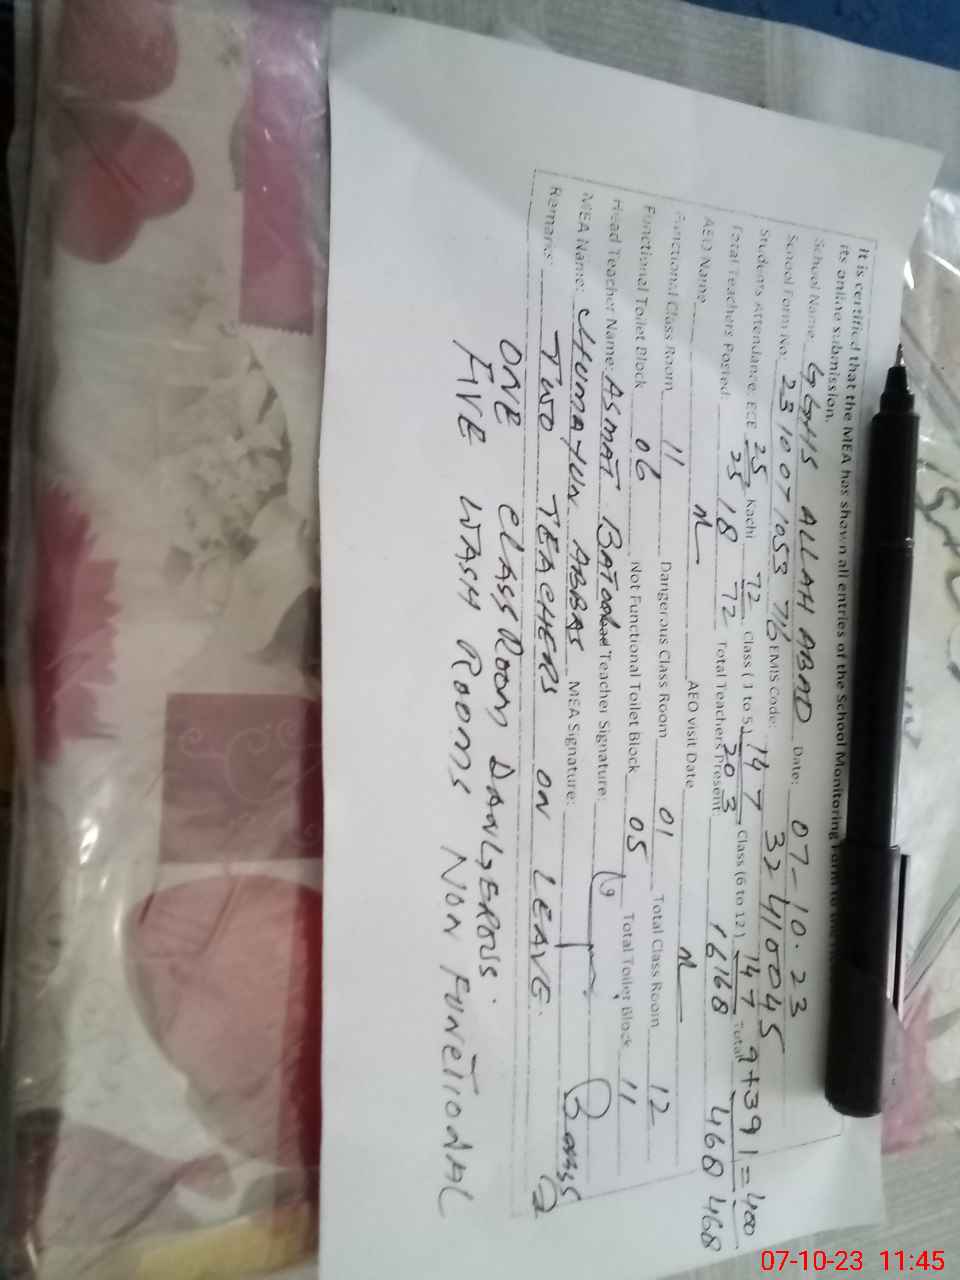 It is certified that the MEA has shown all entries of the School Monitoring Form to the
its online submission.
School Name: GGHS ALLAH ABAD Date: 07-10.23
School Form No: 2310071053 716 EMIS Code: 32410045
Students Attendance: ECE 25 Kachi 72 Class (1 to 5) 147 Class (6 to 12) 147 Total 9+391=400
25 72 203 168 468 468
Total Teachers Posted: 18 Total Teachers Present: 16
AEO Name AEO visit Date
Functional Class Room 11 Dangerous Class Room 01 Total Class Room 12
Functional Toilet Block 06 Not Functional Toilet Block 05 Total Toilet Block 11
Head Teacher Name: ASMAT BATOOL Head Teacher Signature:
MEA Name: HUMAYUN ABBAS MEA Signature:
Remarks: TWO TEACHERS ON LEAVE.
ONE CLASSROOM DANGEROUS.
FIVE WASH ROOMS NON FUNCTIONAL
07-10-23 11:45